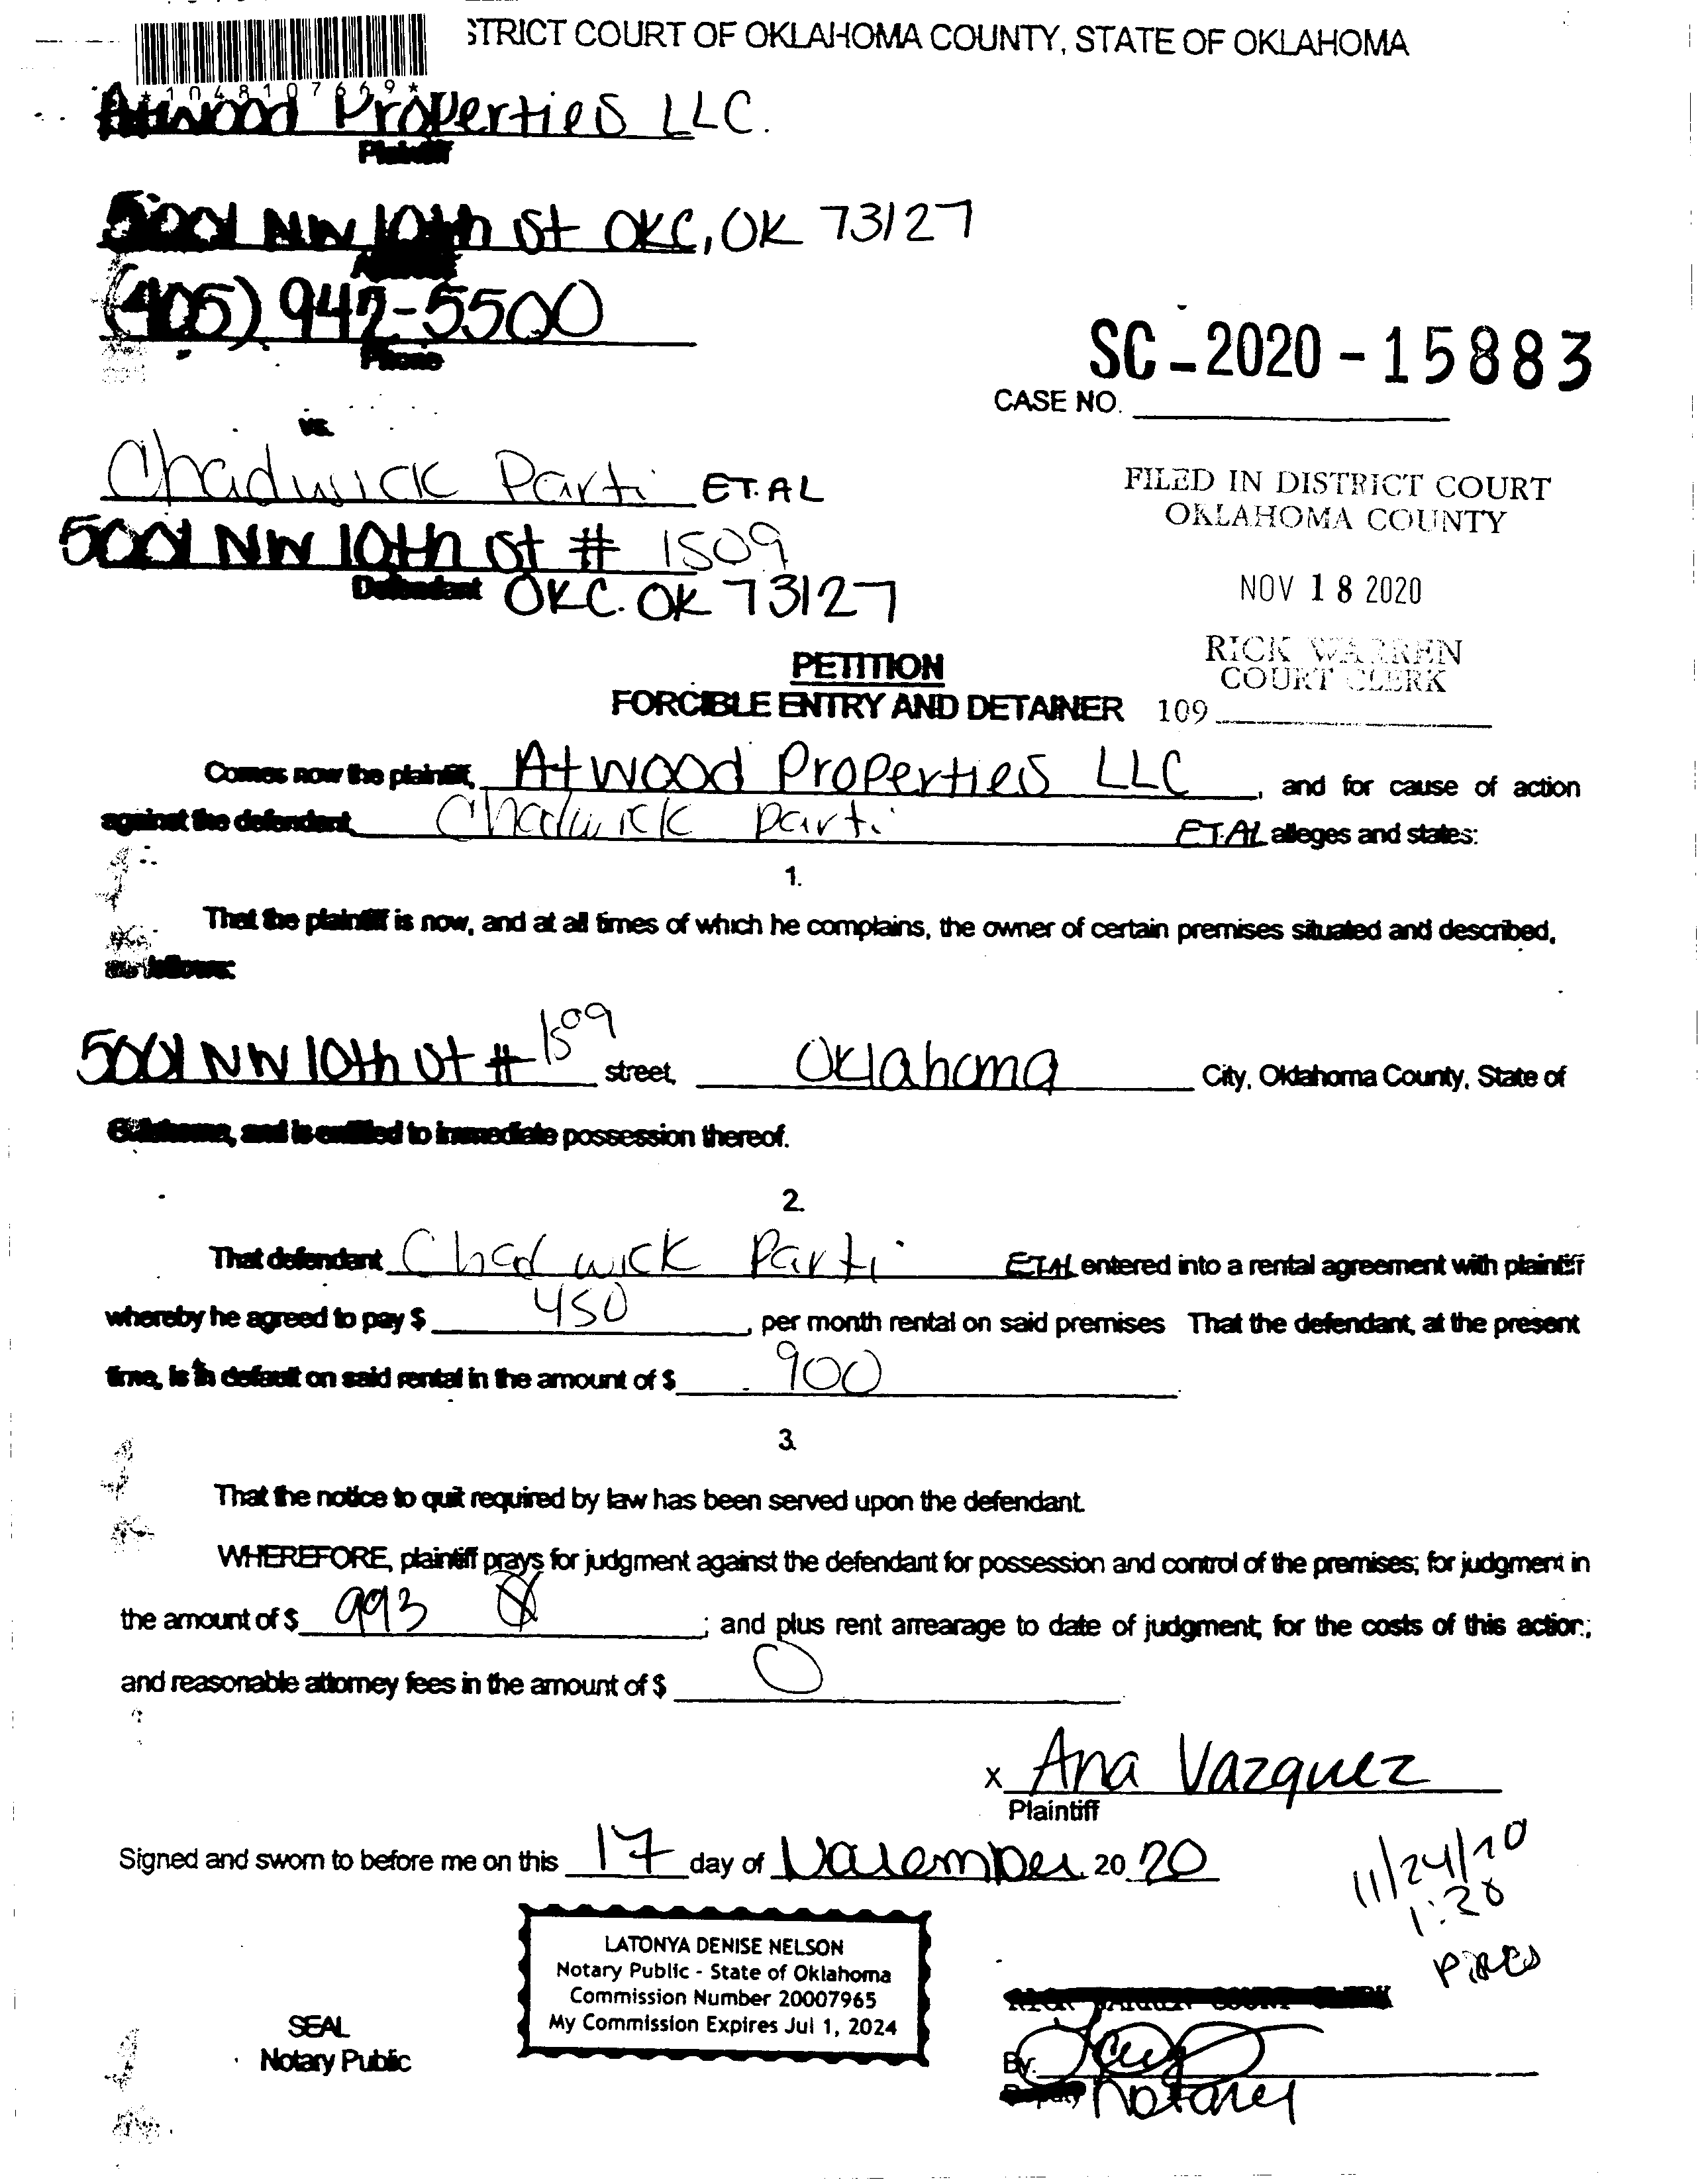 STRICT COURT OF OKLAHOMA COUNTY, STATE OF OKLAHOMA
*1048107669*
Atwood Properties LLC.
Plaintiff
5001 NW 10th St OKC, OK 73127
(405) 942-5500
Phone
SC-2020-15883
CASE NO.
vs.
Chadwick Parti ET.AL
5001 NW 10th St # 1509
Defendant OKC. OK 73127
FILED IN DISTRICT COURT
OKLAHOMA COUNTY
NOV 18 2020
RICK WARREN
COURT CLERK
109
PETITION
FORCIBLE ENTRY AND DETAINER
Comes now the plaintiff, Atwood Properties LLC, and for cause of action
against the defendant Chadwick Parti ET.AL alleges and states:
1.
That the plaintiff is now, and at all times of which he complains, the owner of certain premises situated and described,
as follows:
5001 NW 10th St # 1509 street, Oklahoma City, Oklahoma County, State of
Oklahoma, and is entitled to immediate possession thereof.
2.
That defendant Chadwick Parti ET.AL entered into a rental agreement with plaintiff
whereby he agreed to pay $ 450, per month rental on said premises That the defendant, at the present
time, is in default on said rental in the amount of $ 900
3.
That the notice to quit required by law has been served upon the defendant.
WHEREFORE, plaintiff prays for judgment against the defendant for possession and control of the premises; for judgment in
the amount of $ 993; and plus rent arrearage to date of judgment; for the costs of this action;
and reasonable attorney fees in the amount of $ 0
x Ana Vazquez
Plaintiff
Signed and sworn to before me on this 17 day of November 2020
11/24/20
1:20
LATONYA DENISE NELSON
Notary Public - State of Oklahoma
Commission Number 20007965
My Commission Expires Jul 1, 2024
SEAL
Notary Public
RICK WARREN COURT CLERK
By:
Deputy Notary